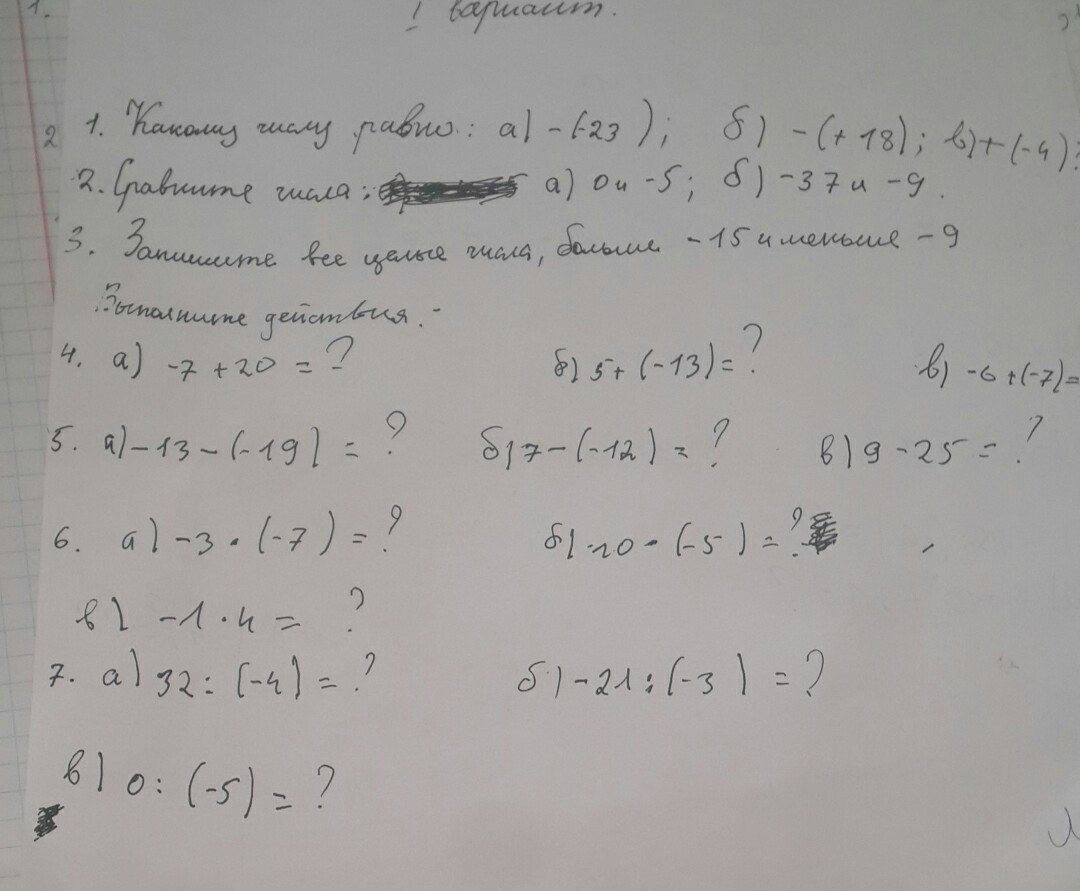 1.
I вариант.
2 1. Какому числу равно: а) -(-23); б) -(+18); в) +(-4)?
2. Сравните числа: а) 0 и -5; б) -37 и -9.
3. Запишите все целые числа, больше -15 и меньше -9
Выполните действия.-
4. а) -7 + 20 = ? б) 5 + (-13) = ? в) -6 + (-7) =
5. а) -13 - (-19) = ? б) 7 - (-12) = ? в) 9 - 25 = ?
6. а) -3 · (-7) = ? б) · (-5) = ?
в) -1 · 4 = ?
7. а) 32 : (-4) = ? б) -21 : (-3) = ?
в) 0 : (-5) = ?